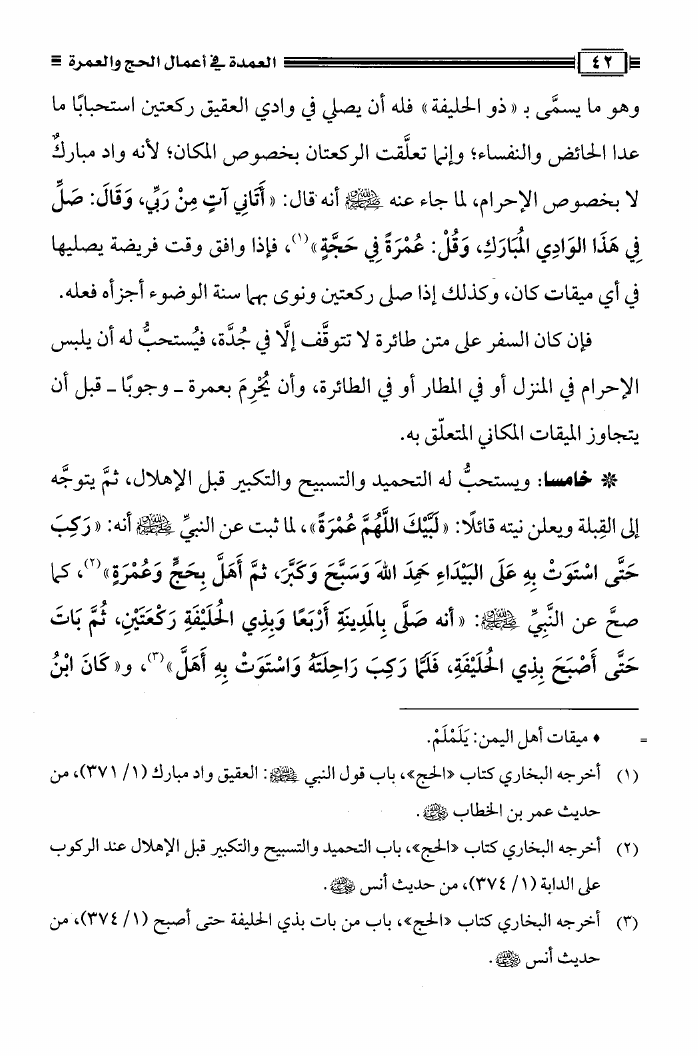 ٤٢
العمدة في أعمال الحج والعمرة
وهو ما يسمَّى بـ «ذو الحليفة» فله أن يصلي في وادي العقيق ركعتين استحبابًا ما
عدا الحائض والنفساء؛ وإنما تعلَّقت الركعتان بخصوص المكان؛ لأنه واد مباركٌ
لا بخصوص الإحرام، لما جاء عنه ﷺ أنه قال: «أَتَانِي آتٍ مِنْ رَبِّي، وَقَالَ: صَلِّ
فِي هَذَا الوَادِي المُبَارَكِ، وَقُلْ: عُمْرَةً فِي حَجَّةٍ»(١)، فإذا وافق وقت فريضة يصليها
في أي ميقات كان، وكذلك إذا صلى ركعتين ونوى بهما سنة الوضوء أجزأه فعله.
فإن كان السفر على متن طائرة لا تتوقَّف إلَّا في جُدَّة، فيُستحبُّ له أن يلبس
الإحرام في المنزل أو في المطار أو في الطائرة، وأن يُحْرِمَ بعمرة ـ وجوبًا ـ قبل أن
يتجاوز الميقات المكاني المتعلّق به.
* خامسا: ويستحبُّ له التحميد والتسبيح والتكبير قبل الإهلال، ثمَّ يتوجَّه
إلى القِبلة ويعلن نيته قائلًا: «لَبَّيْكَ اللَّهُمَّ عُمْرَةً»، لما ثبت عن النبيِّ ﷺ أنه: «رَكِبَ
حَتَّى اسْتَوَتْ بِهِ عَلَى البَيْدَاءِ حَمِدَ اللهَ وَسَبَّحَ وَكَبَّرَ، ثمَّ أَهَلَّ بِحَجٍّ وَعُمْرَةٍ»(٢)، كما
صحَّ عن النَّبيِّ ﷺ: «أنه صَلَّى بِالمَدِينَةِ أَرْبَعًا وَبِذِي الحُلَيْفَةِ رَكْعَتَيْنِ، ثُمَّ بَاتَ
حَتَّى أَصْبَحَ بِذِي الحُلَيْفَةِ، فَلَمَّا رَكِبَ رَاحِلَتَهُ وَاسْتَوَتْ بِهِ أَهَلَّ»(٣)، و«كَانَ ابْنُ
= ♦ ميقات أهل اليمن: يَلَمْلَمْ.
(١) أخرجه البخاري كتاب «الحج»، باب قول النبي ﷺ: العقيق واد مبارك (١/ ٣٧١)، من
حديث عمر بن الخطاب رضي الله عنه.
(٢) أخرجه البخاري كتاب «الحج»، باب التحميد والتسبيح والتكبير قبل الإهلال عند الركوب
على الدابة (١/ ٣٧٤)، من حديث أنس رضي الله عنه.
(٣) أخرجه البخاري كتاب «الحج»، باب من بات بذي الحليفة حتى أصبح (١/ ٣٧٤)، من
حديث أنس رضي الله عنه.